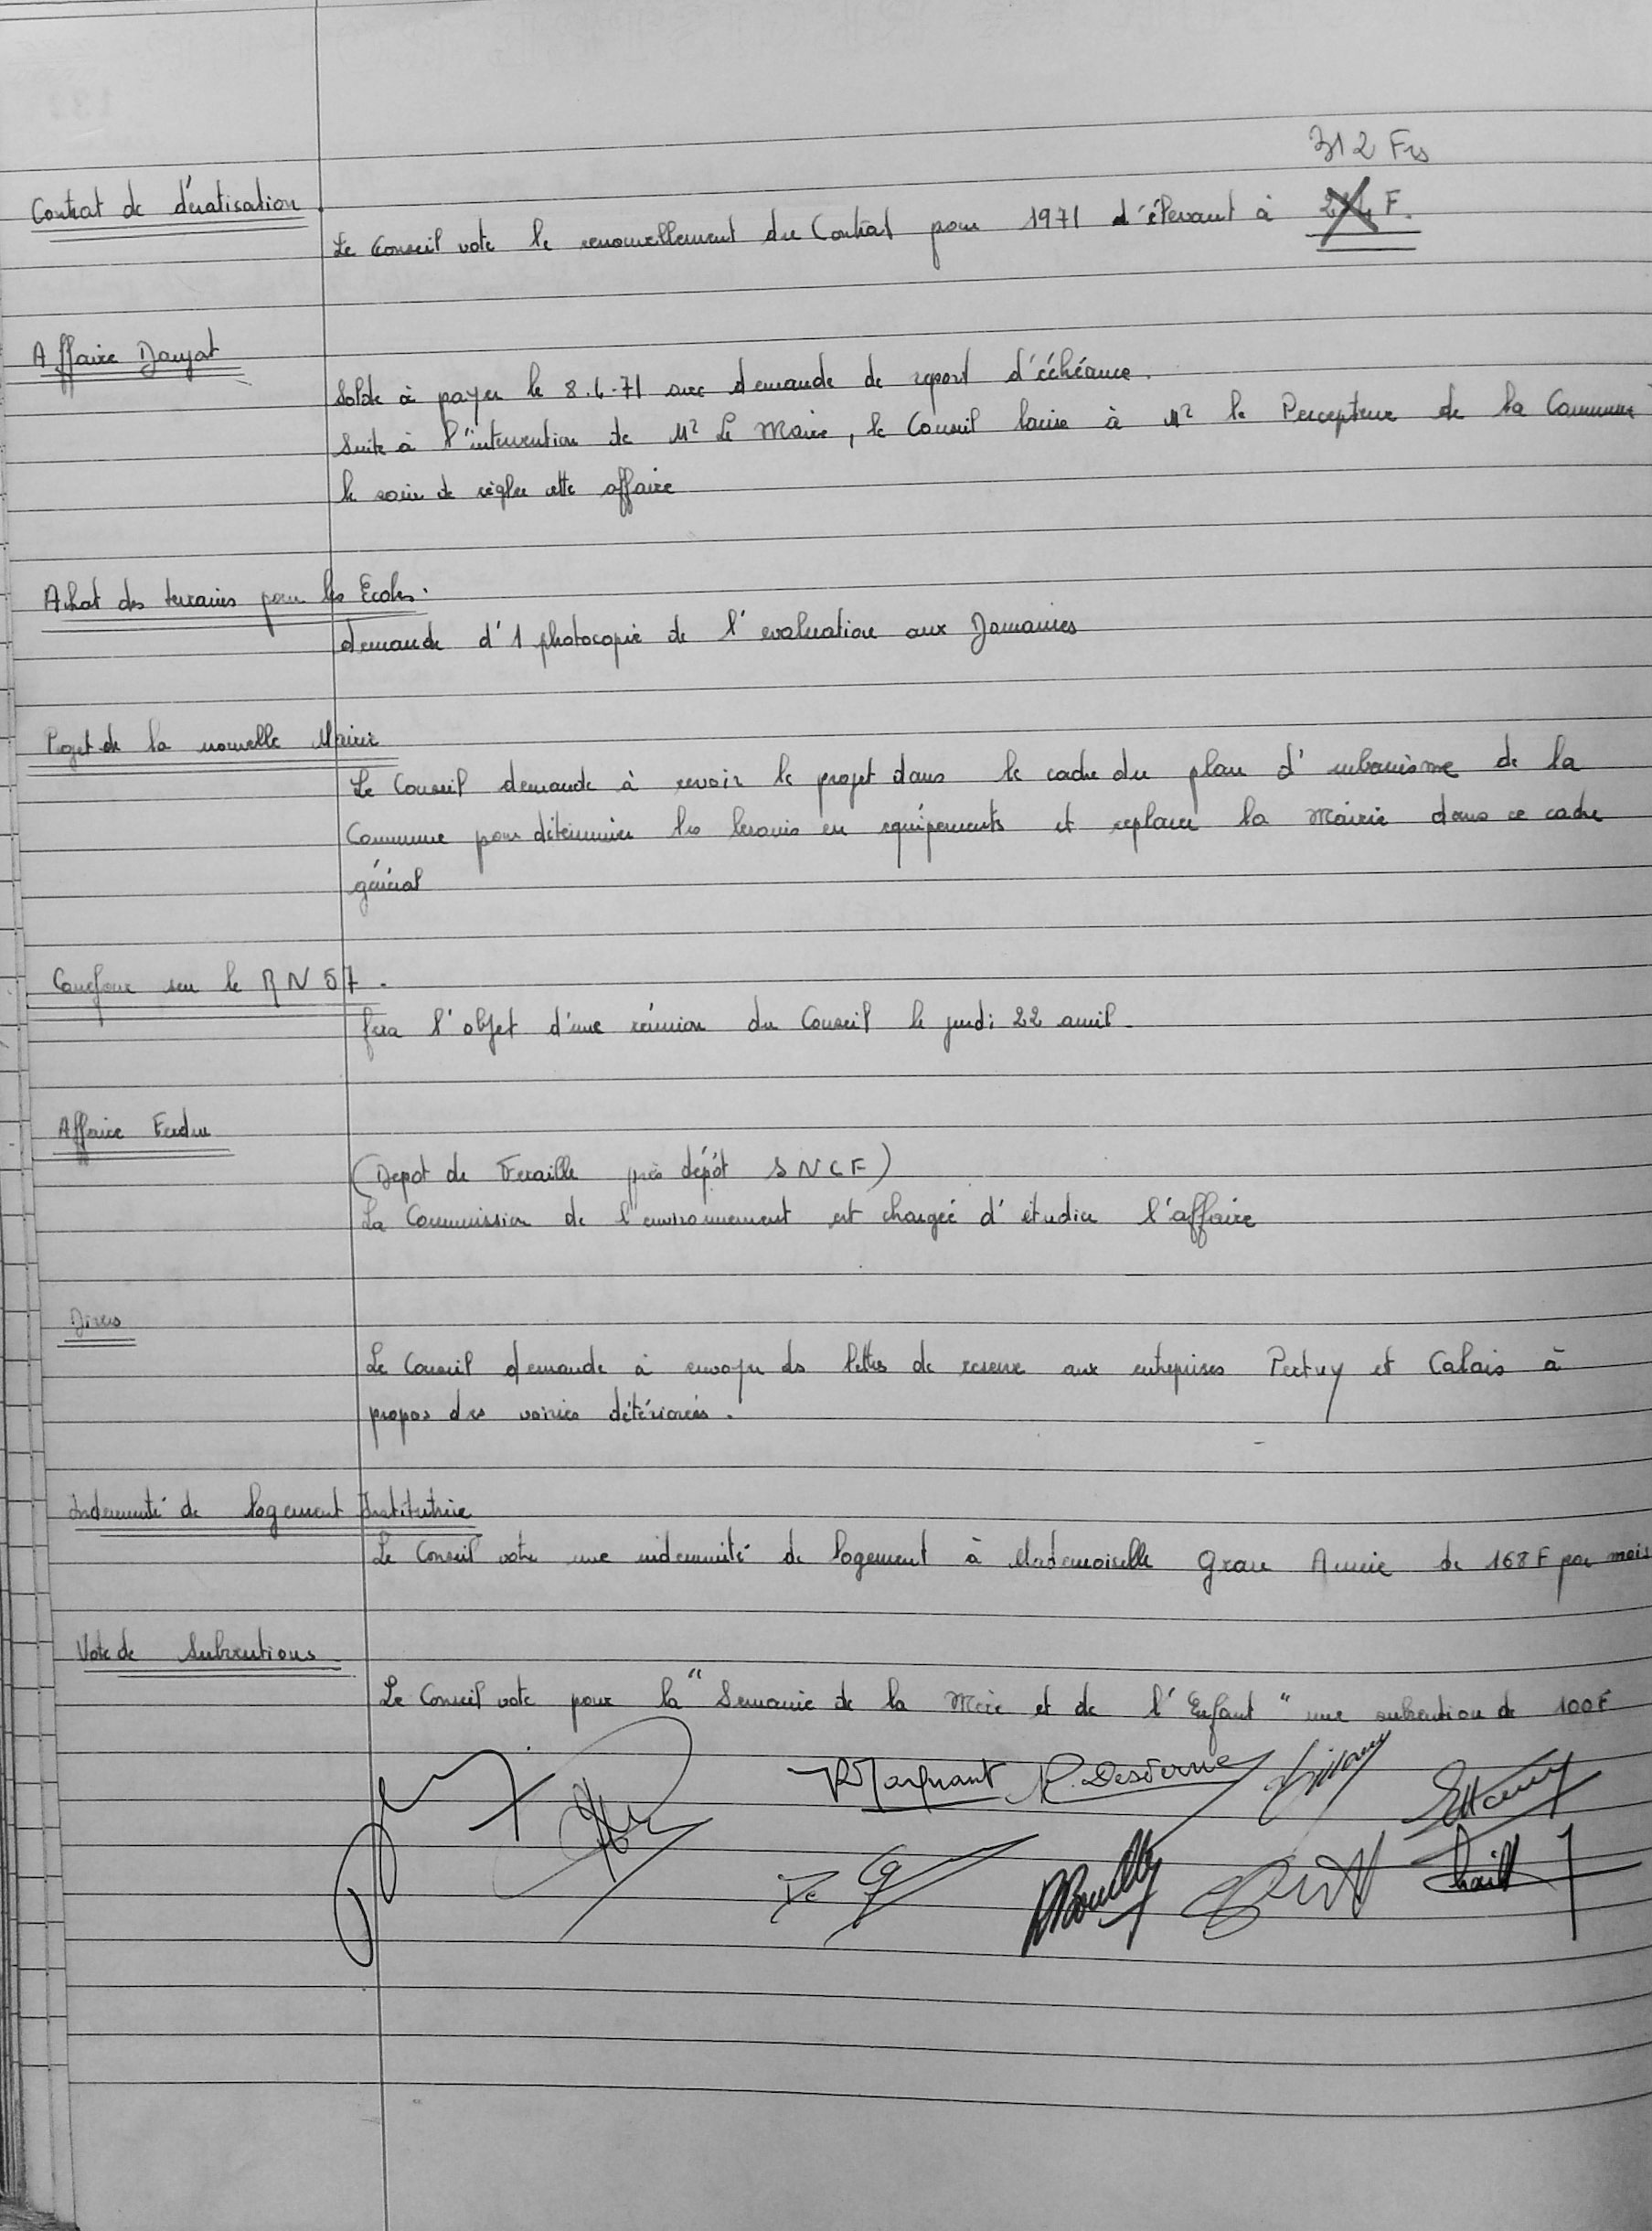 312 Frs
Contrat de dératisation
Le Conseil vote le renouvellement du Contrat pour 1971 s'élevant à F.
Affaire
Solde à payer le 8.4.71 avec demande de report d'échéance.
Suite à l'intervention de Mr Le Maire, le Conseil laisse à Mr le Percepteur de la Commune
le soin de régler cette affaire
Achat des terrains pour les Ecoles.
demande d'1 photocopie de l'evaluation aux Domaines
Projet de la nouvelle Mairie
Le Conseil demande à revoir le projet dans le cadre du plan d'urbanisme de la
Commune pour déterminer les besoins en equipements et replacer la Mairie dans ce cadre
général
Carrefour sur le RN 57.
fera l'objet d'une réunion du Conseil le jeudi 22 avril.
Affaire
(Depot de Ferraille près dépôt SNCF)
La Commission de l'environnement est chargée d'étudier l'affaire
Divers
Le Conseil demande à envoyer des lettres de reserve aux entreprises Pertuy et Calais à
propos des voiries détériorées.
Indemnité de logement Institutrice
Le Conseil vote une indemnité de logement à Mademoiselle Annie de 168 F par mois
Vote de Subventions
Le Conseil vote pour la "Semaine de la Mère et de l'Enfant" une subvention de 100 F